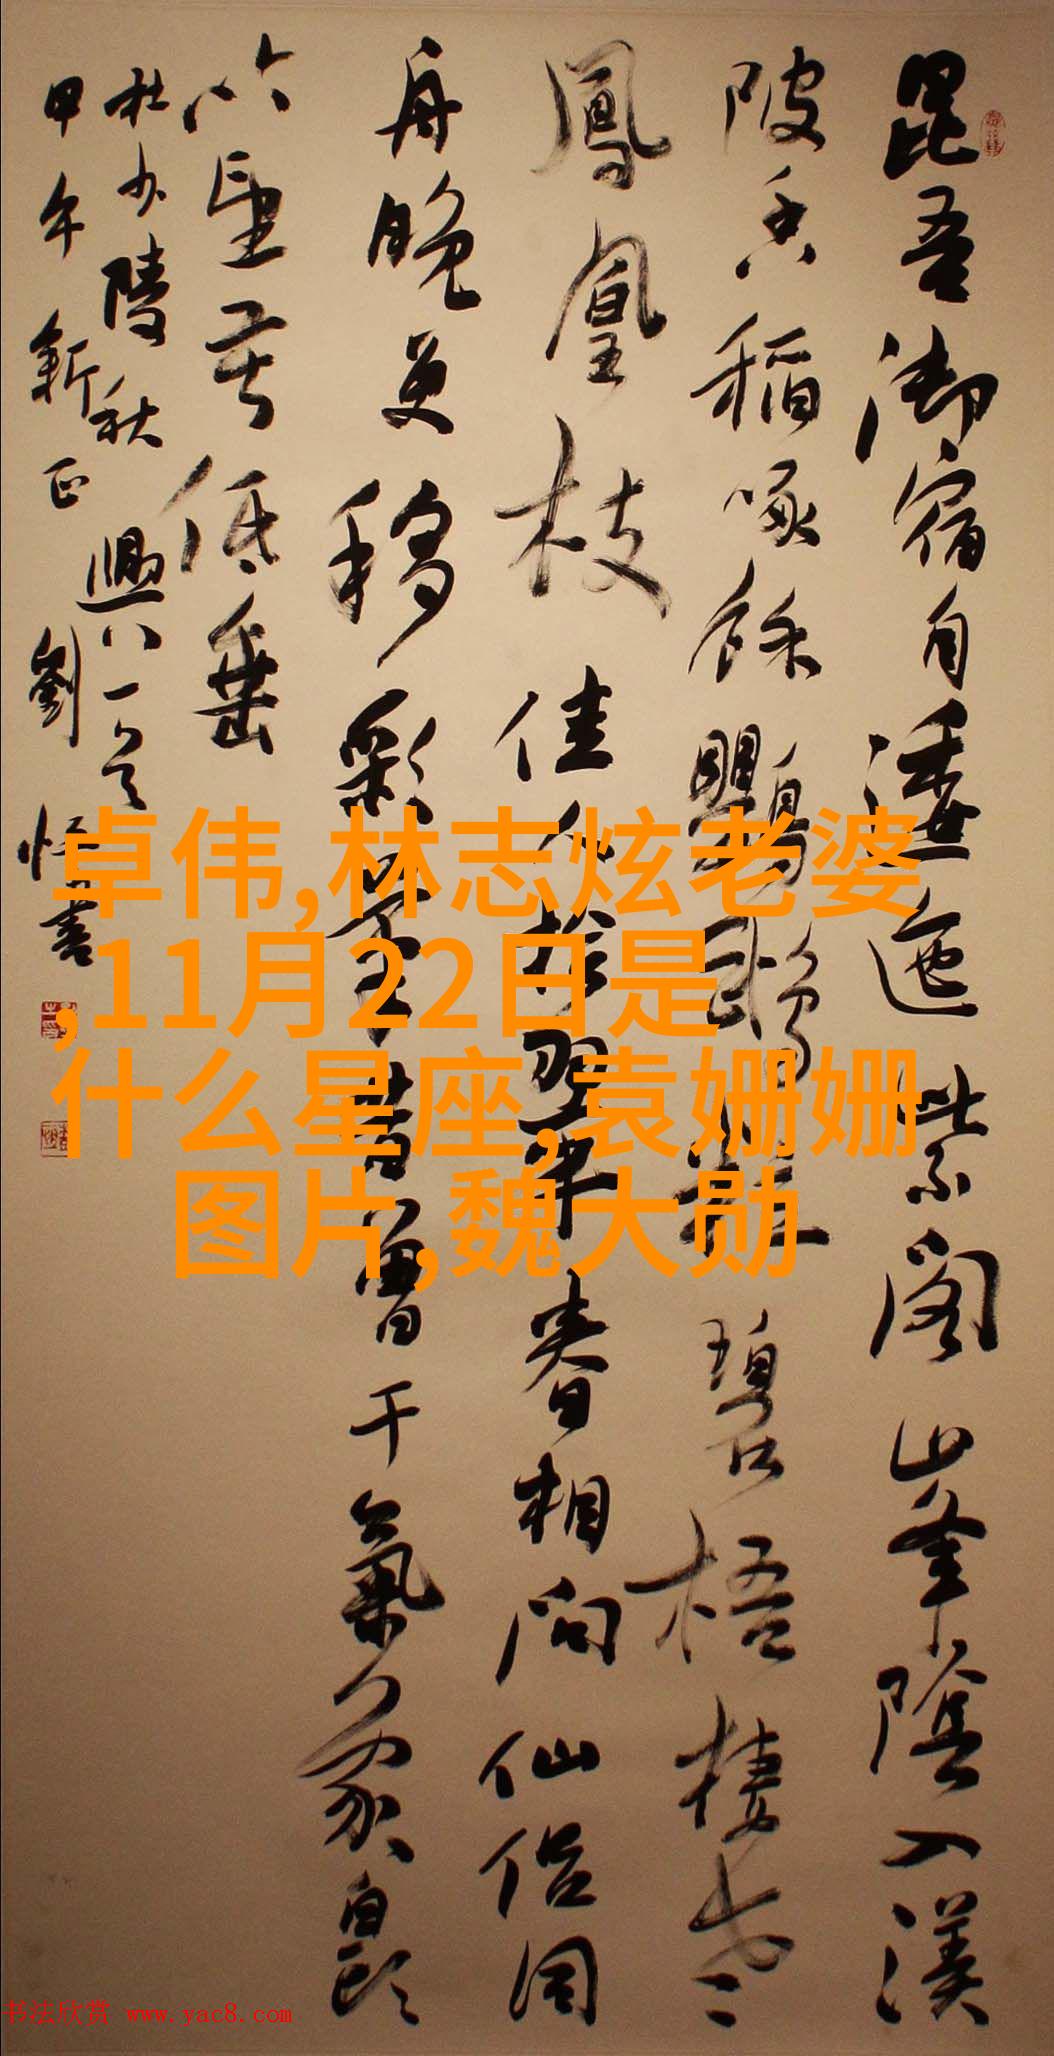 昆吾御宿自逶迤紫阁峯陰入渼
陂香稻啄餘鸚鵡粒碧梧棲老
鳳凰枝佳人拾翠春相問仙侣同
舟晚更移彩筆昔曾干氣象白頭
吟望苦低垂
杜少陵秋興八一
甲午新正劉恒書
卓伟,林志炫老婆
,11月22日是
什么星座,袁姗姗
图片,魏大勋
书法欣赏 www.yac8.com